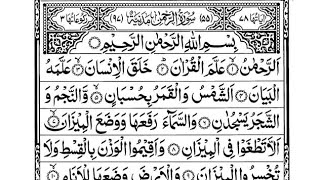 اٰيَاتُهَا ٧٨ (٥٥) سُوْرَةُ الرَّحْمٰنِ مَدَنِيَّةٌ (٩٧) رُكُوْعَاتُهَا ٣
بِسْمِ اللّٰهِ الرَّحْمٰنِ الرَّحِيْمِ
اَلرَّحْمٰنُ ۙ﴿١﴾ عَلَّمَ الْقُرْاٰنَ ؕ﴿٢﴾ خَلَقَ الْاِنْسَانَ ۙ﴿٣﴾ عَلَّمَهُ
الْبَيَانَ ﴿٤﴾ اَلشَّمْسُ وَالْقَمَرُ بِحُسْبَانٍ ۪﴿٥﴾ وَّالنَّجْمُ وَ
الشَّجَرُ يَسْجُدٰنِ ﴿٦﴾ وَالسَّمَآءَ رَفَعَهَا وَوَضَعَ الْمِيْزَانَ ۙ﴿٧﴾
اَلَّا تَطْغَوْا فِي الْمِيْزَانِ ﴿٨﴾ وَاَقِيْمُوا الْوَزْنَ بِالْقِسْطِ وَلَا
تُخْسِرُوا الْمِيْزَانَ ﴿٩﴾ وَالْاَرْضَ وَضَعَهَا لِلْاَنَامِ ۙ﴿١٠﴾